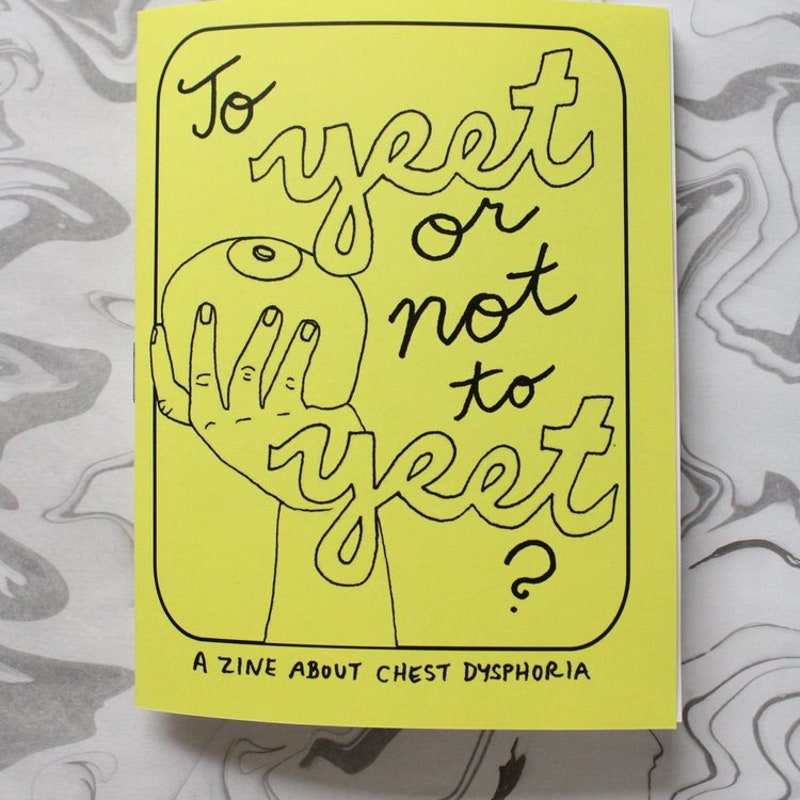 To
yeet
or
not
to
yeet
?
A ZINE ABOUT CHEST DYSPHORIA